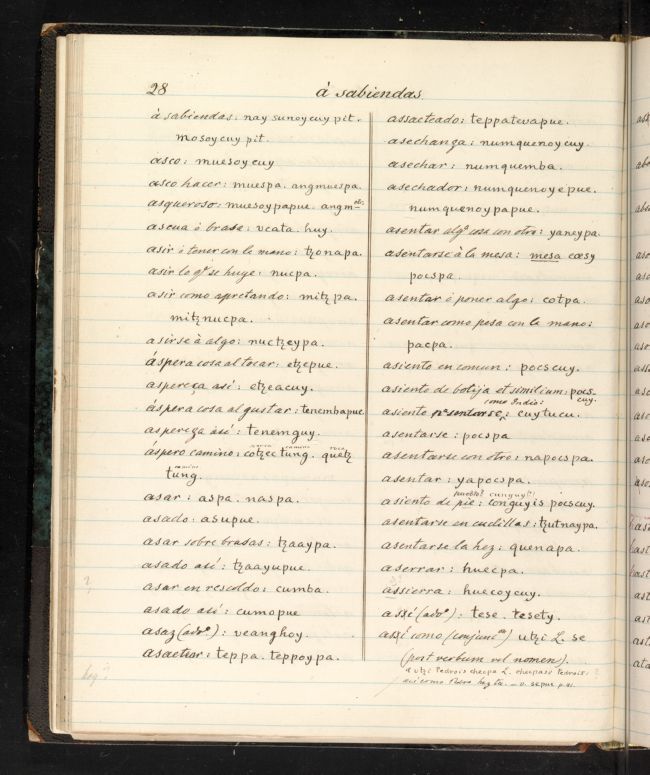 28
á sabiendas
á sabiendas: nay sunoycuy pit.
mosoycuy pit.
asco: muesoycuy
asco hacer: muespa. angmuespa.
asqueroso: muesoypapue. angm
ascua ó brasa: vcata. huy.
asir ó tener con la mano: tzonapa.
asir lo q.e se huye: nucpa.
asir como apretando: mitzpa.
mitznucpa.
asirse á algo: nuctzeypa.
áspera cosa al tocar: etzepue.
aspereça así: etzeacuy.
áspera cosa al gustar: tenembapue.
aspereza así: tenemguy.
áspero camino: cotzec tung. quetz
camino
tung.
asar: aspa. naspa.
asado: asupue.
asar sobre brasas: tzaaypa.
asado así: tzaayupue.
asar en rescoldo: cumba.
asado así: cumopue
asaz (advo.): veanghoy.
asaetear: teppa. teppoypa.
assaeteado: teppatevapue.
asechanza: numquenoycuy.
asechar: numquemba.
asechador: numquenoyepue.
numquenoypapue.
asentar algª cosa con otro: yaneypa.
asentarse á la mesa: mesa cœsy
pocspa.
asentar ó poner algo: cotpa.
asentar como pesa con la mano:
pacpa.
asiento en comun: pocscuy.
asiento de botija et similium: pocs-
cuy.
como Indio:
asiento pª sentarse: cuytucu.
asentarse: pocspa
asentarse con otro: napocspa.
asentar: yapocspa.
pueblo? cunguy(?)
asiento de pie: conguyis pocscuy.
asentarse en cuclillas: tzutnaypa.
asentarse la hez: quenapa.
aserrar: huecpa.
assierra: huecoycuy.
assí (advo.): tese. tesety.
assí como (conjunion) utzi L. se
(post verbum vel nomen).
a utzi Pedrois checpa L. checpase Pedrois:
así como Pedro . — v. sepue p.